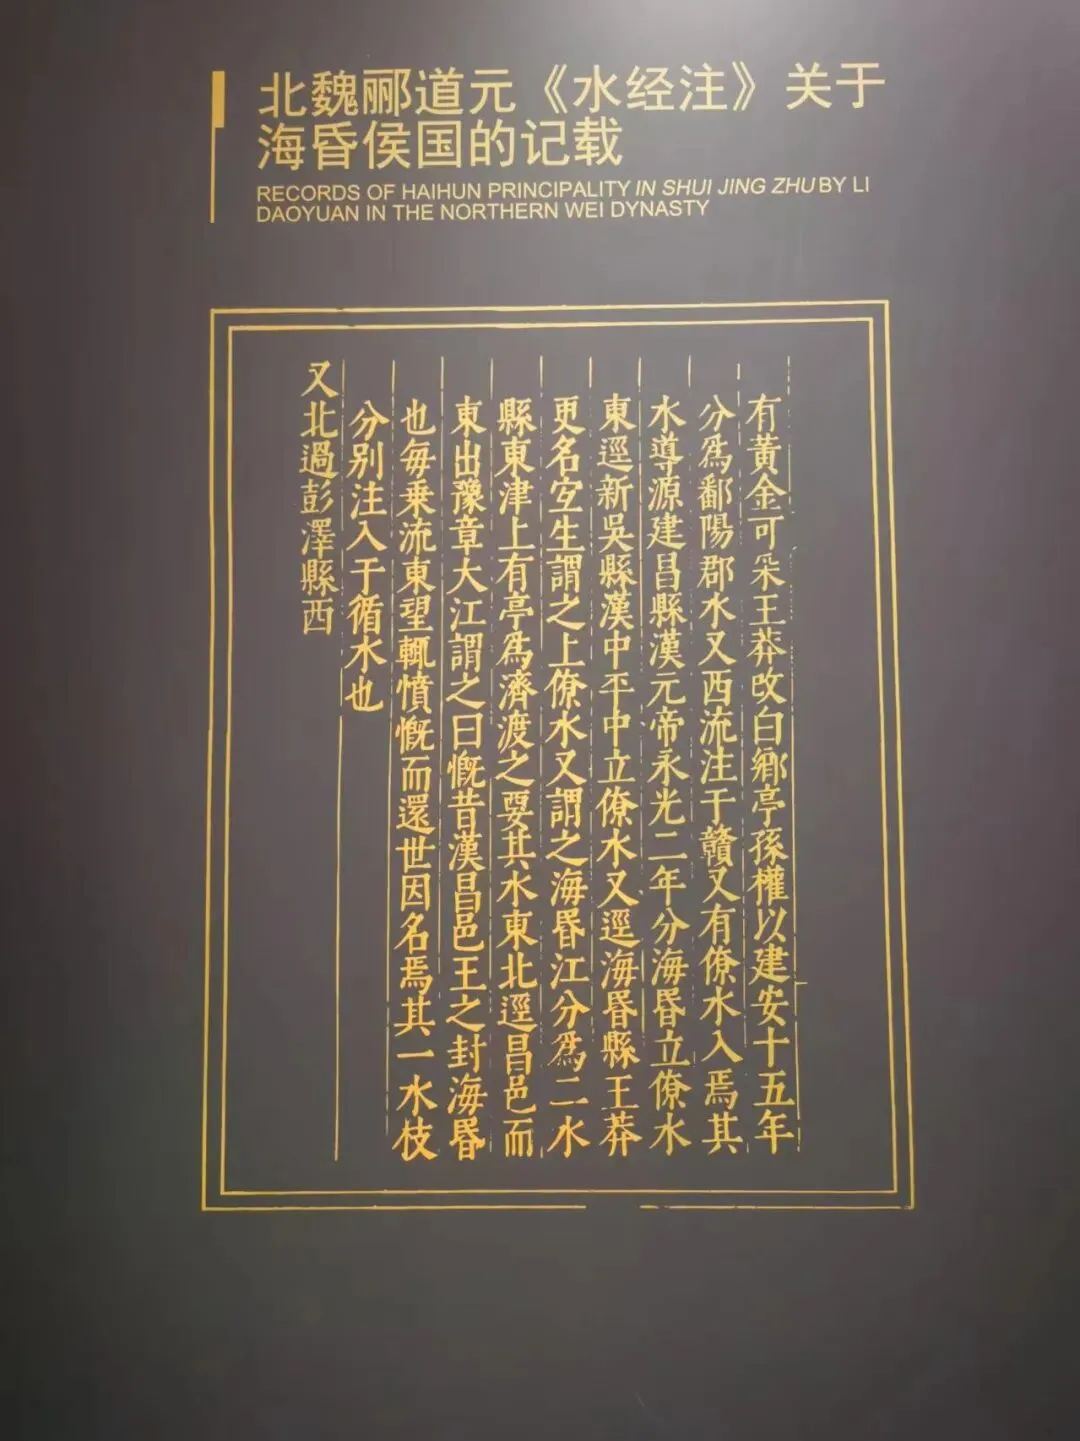 北魏郦道元《水经注》关于
海昏侯国的记载
RECORDS OF HAIHUN PRINCIPALITY IN SHUI JING ZHU BY LI
DAOYUAN IN THE NORTHERN WEI DYNASTY
有黃金可采王莽改白鄉亭孫權以建安十五年
分爲鄱陽郡水又西流注于贛又有僚水入焉其
水導源建昌縣漢元帝永光二年分海昬立僚水
東逕新吳縣漢中平中立僚水又逕海昬縣王莽
更名宜生謂之上僚水又謂之海昬江分爲二水
縣東津上有亭爲濟渡之要其水東北逕昌邑而
東出豫章大江謂之曰慨昔漢昌邑王之封海昬
也每乗流東望輒憤慨而還世因名焉其一水枝
分别注入于循水也
又北過彭澤縣西